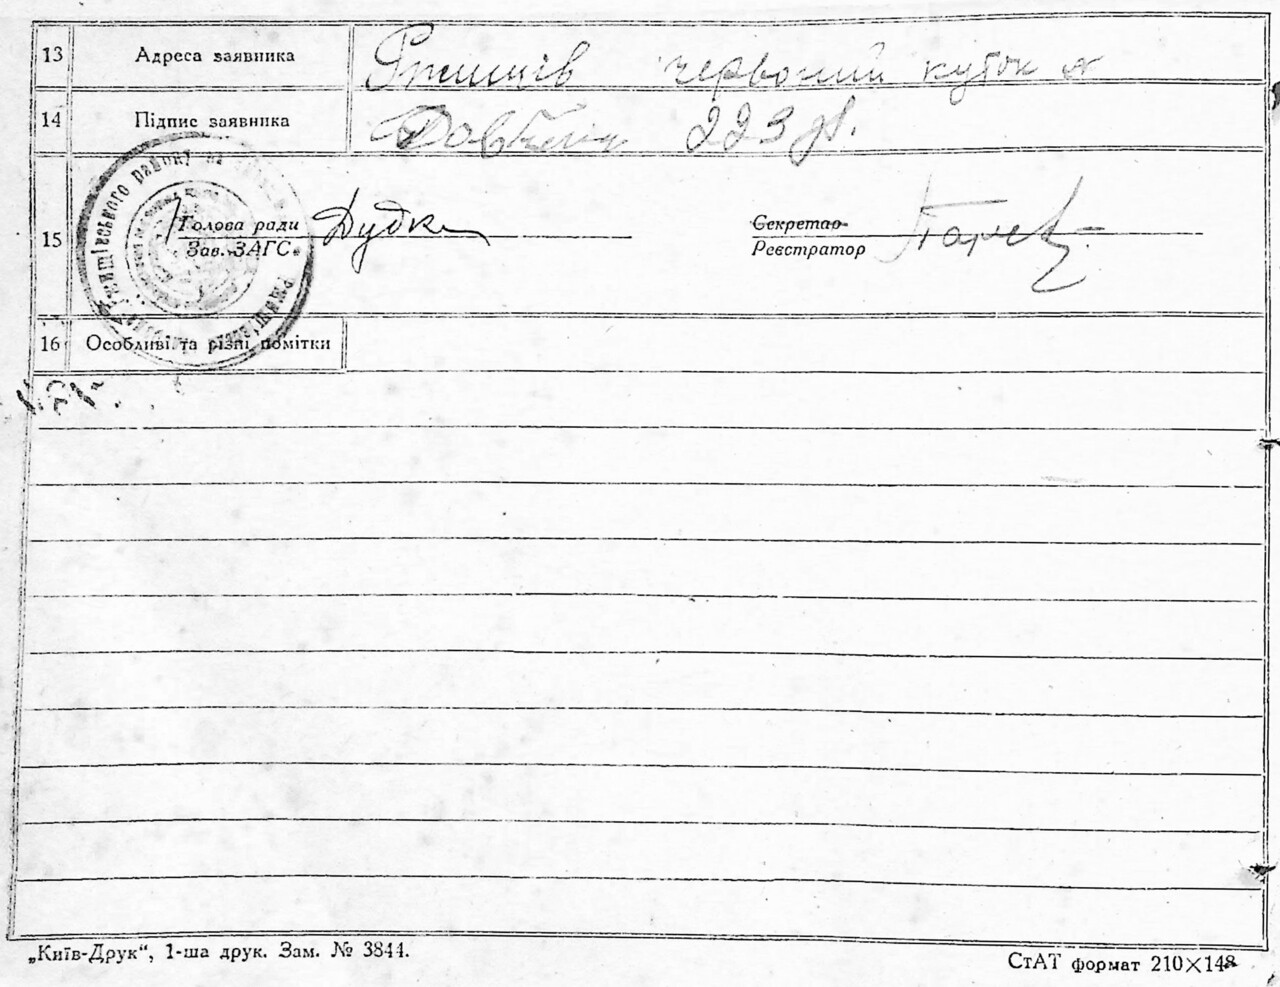 13 Адреса заявника Ржищів червоний куток
14 Підпис заявника Довбня 223
Ржищівського району
15 Голова ради Дудка Секретар
Зав. ЗАГС Реєстратор
16 Особливі та різні помітки
„Київ-Друк“, 1-ша друк. Зам. № 3844.
СтАТ формат 210×148